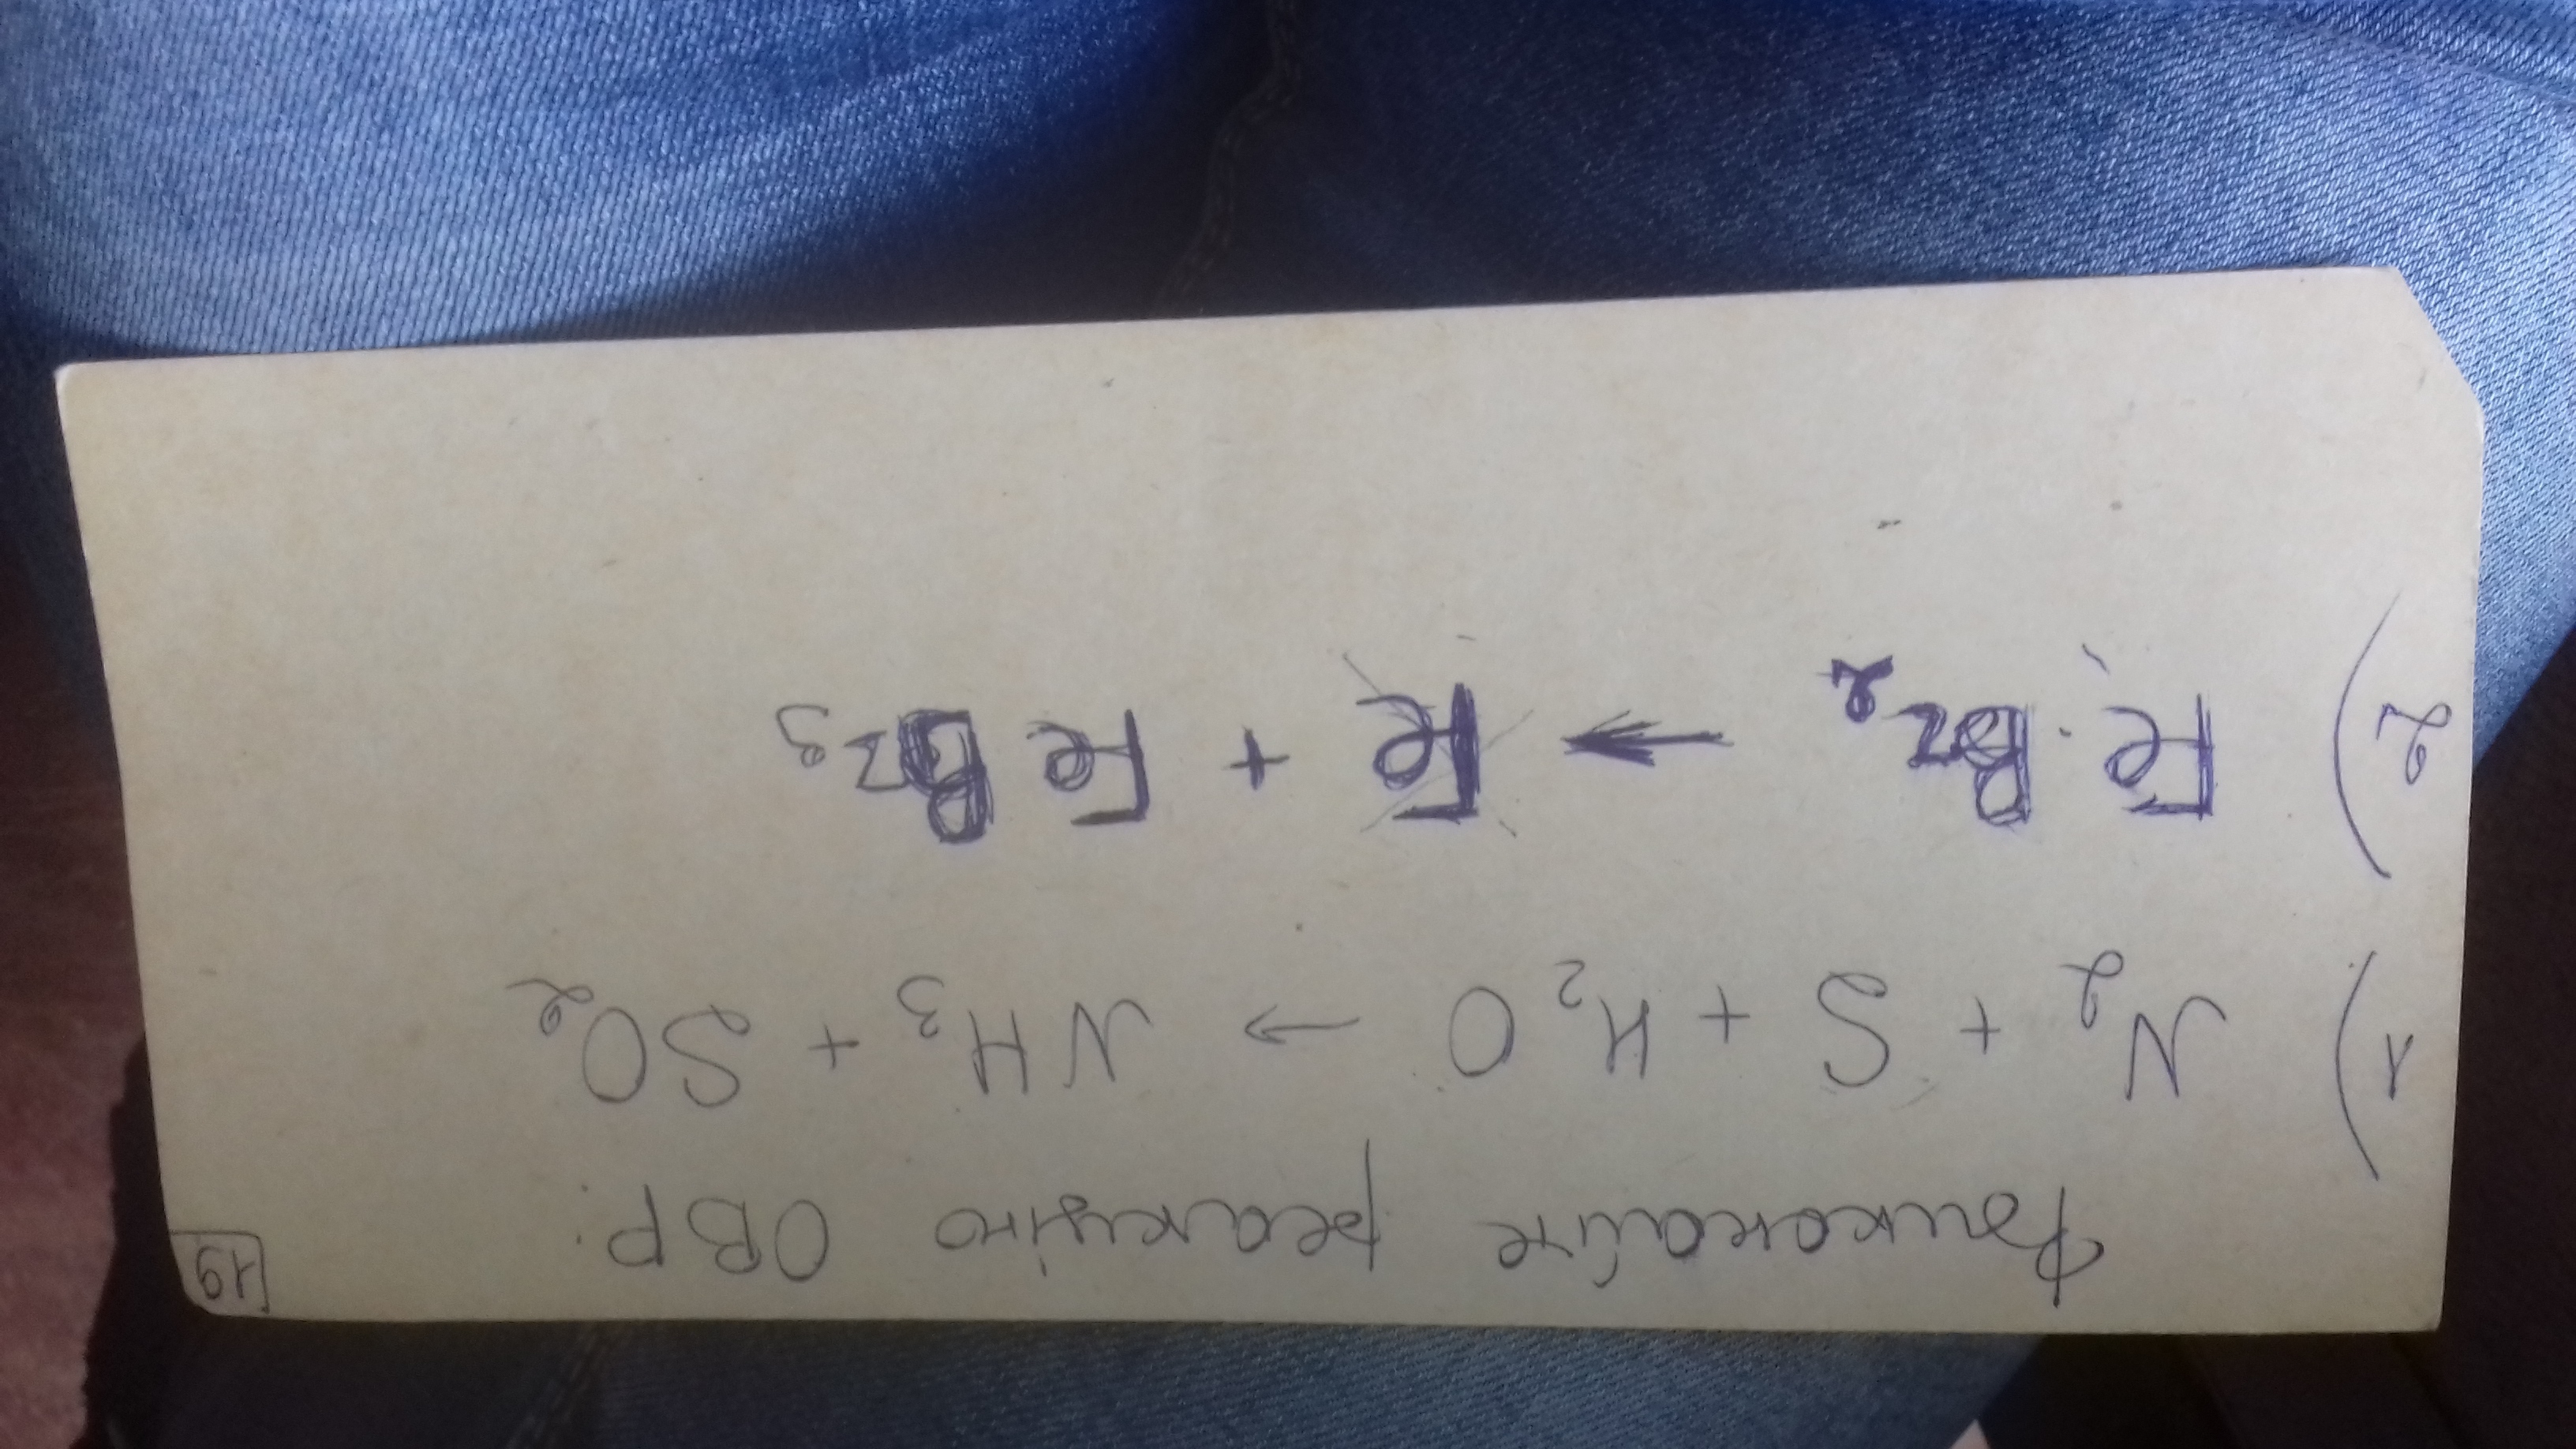 19
Виконайте реакцію ОВР:
1) N₂ + S + H₂O → NH₃ + SO₂
2) FeBr₂ → Fe + FeBr₃